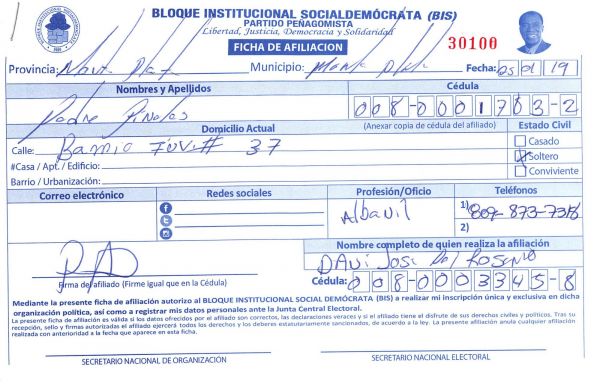 BLOQUE INSTITUCIONAL SOCIALDEMÓCRATA (BIS)
PARTIDO PEÑAGOMISTA
Libertad, Justicia, Democracia y Solidaridad
FICHA DE AFILIACION
30100
Provincia: Municipio: Fecha: 05 01 19
Nombres y Apellidos Cédula
008-0001703-2
Domicilio Actual (Anexar copia de cédula del afiliado) Estado Civil
Calle: Barrio 37
Casado
#Casa / Apt. / Edificio: Soltero
Barrio / Urbanización: Conviviente
Correo electrónico Redes sociales Profesión/Oficio Teléfonos
Albañil 1) 809-873-7318
2)
Nombre completo de quien realiza la afiliación
Jose Del Rosario
Firma del afiliado (Firme igual que en la Cédula) Cédula: 008-0003345-8
Mediante la presente ficha de afiliación autorizo al BLOQUE INSTITUCIONAL SOCIAL DEMÓCRATA (BIS) a realizar mi inscripción única y exclusiva en dicha
organización política, así como a registrar mis datos personales ante la Junta Central Electoral.
La presente ficha de afiliación es válida si los datos ofrecidos por el afiliado son correctos, las declaraciones veraces y si el afiliado tiene el disfrute de sus derechos civiles y políticos. Tras su
recepción, sello y firmas autorizadas el afiliado ejercerá todos los derechos y los deberes estatutariamente sancionados, de acuerdo a la ley. La presente afiliación anula cualquier afiliación
realizada con anterioridad a la fecha que aparece en esta ficha.
SECRETARIO NACIONAL DE ORGANIZACIÓN SECRETARIO NACIONAL ELECTORAL